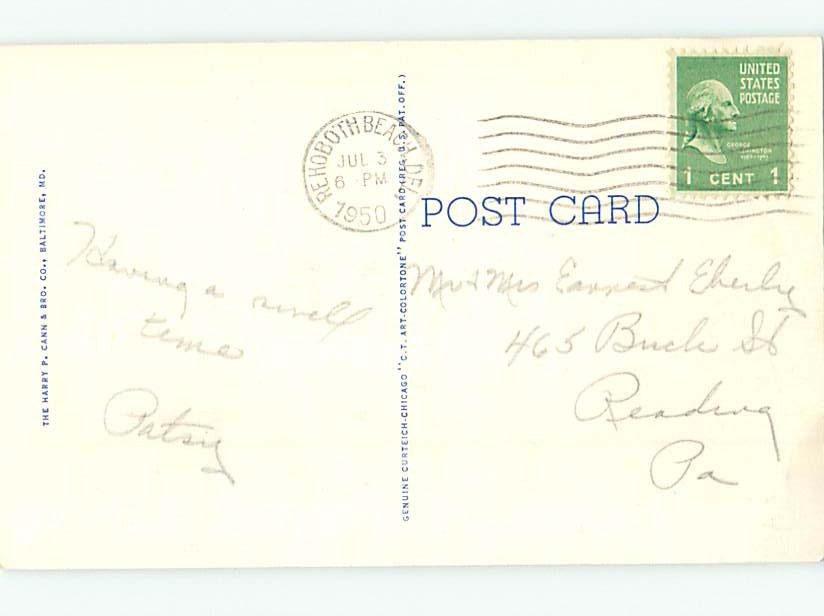 THE HARRY P. CANN & BRO. CO., BALTIMORE, MD.
Having a swell
time
Patsy
GENUINE CURTEICH-CHICAGO "C.T. ART-COLORTONE" POST CARD (REG. U.S. PAT. OFF.)
REHOBOTH BEACH DEL
JUL 3
6 PM
1950
UNITED
STATES
POSTAGE
GEORGE
WASHINGTON
1 CENT 1
POST CARD
Mr & Mrs Earnest Eberly
465 Buch St
Reading
Pa